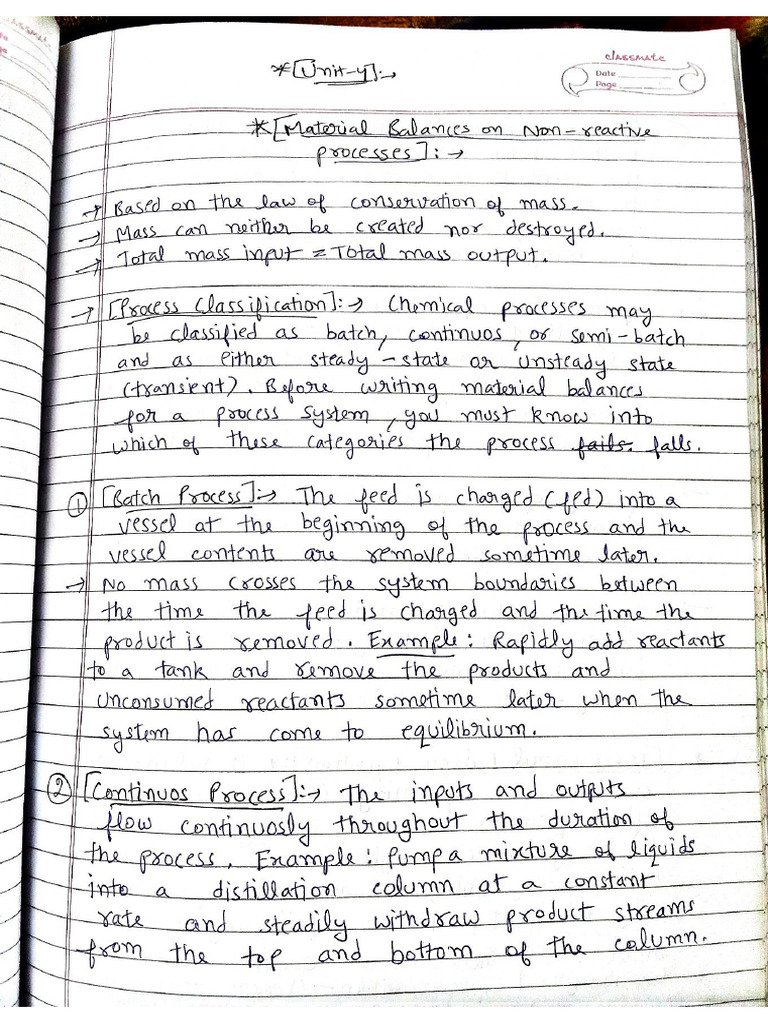 classmate
Date
Page
*[Unit-4]:→
*[Material Balances on Non-reactive
processes]:→
→ Based on the law of conservation of mass.
→ Mass can neither be created nor destroyed.
→ Total mass input = Total mass output.
→ [Process Classification]:→ Chemical processes may
be classified as batch, continuos, or semi-batch
and as either steady-state or unsteady state
(transient). Before writing material balances
for a process system, you must know into
which of these categories the process fails. falls.
① [Batch Process]:→ The feed is charged (fed) into a
vessel at the beginning of the process and the
vessel contents are removed sometime later.
→ No mass crosses the system boundaries between
the time the feed is charged and the time the
product is removed. Example: Rapidly add reactants
to a tank and remove the products and
unconsumed reactants sometime later when the
system has come to equilibrium.
② [Continuos Process]:→ The inputs and outputs
flow continuosly throughout the duration of
the process. Example: Pump a mixture of liquids
into a distillation column at a constant
rate and steadily withdraw product streams
from the top and bottom of the column.